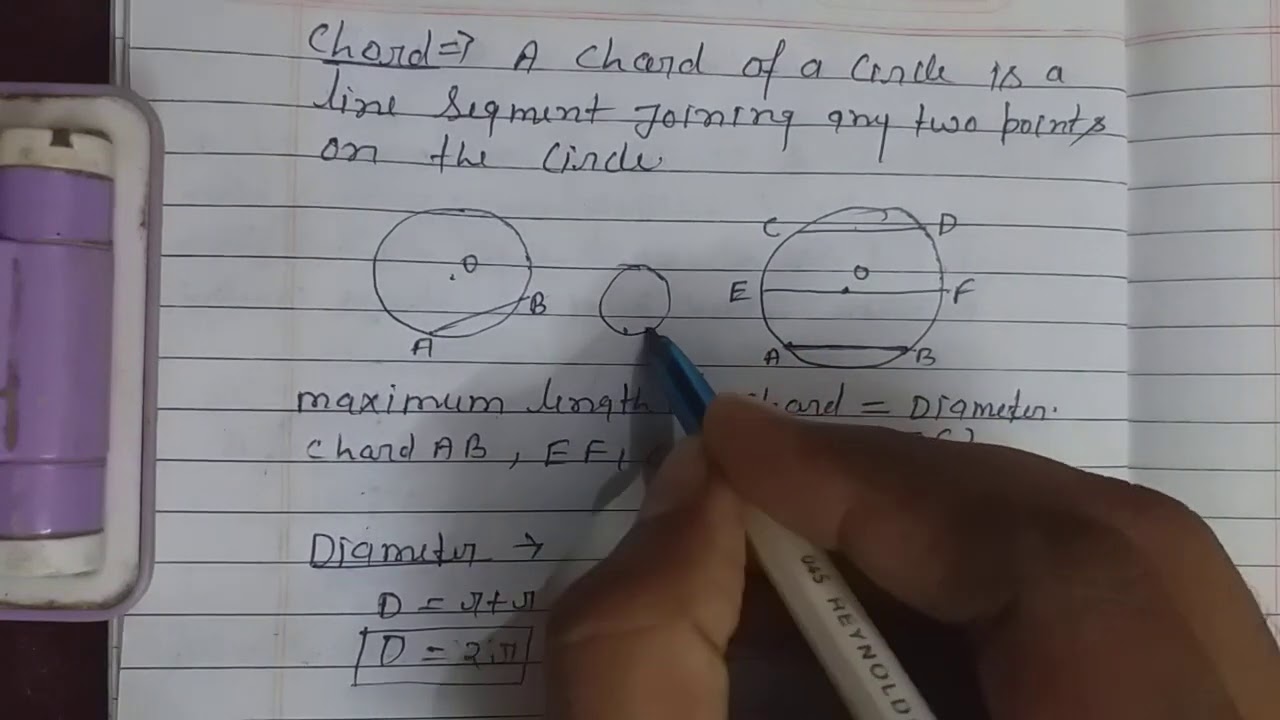 Chord ⇒ A Chord of a Circle is a
line segment Joining any two points
on the Circle
C D
O O
E F
B
A A B
maximum length Chord = Diameter.
Chord AB, EF,
Diameter →
D = r+r
D = 2r
045 REYNOLDS